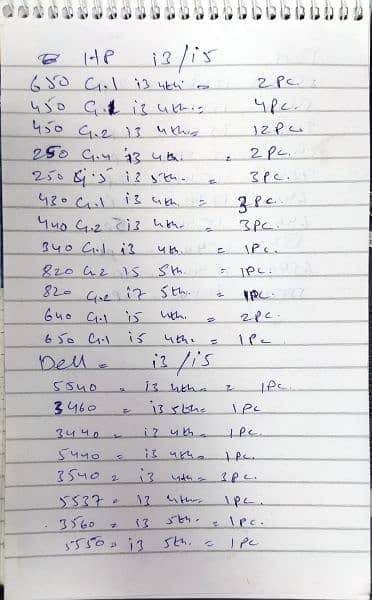 HP i3/i5
650 G.1 i3 4th = 2Pc.
450 G.1 i3 4th = 4Pc.
450 G.2 i3 4th = 12Pc
250 G.4 i3 4th. = 2Pc.
250 G.5 i3 5th. = 3Pc.
430 G.1 i3 4th = 3Pc.
440 G.2 i3 4th. = 3Pc.
340 G.1 i3 4th. = 1Pc.
820 G.2 i5 5th. = 1Pc.
820 G.2 i7 5th. = 1Pc.
640 G.1 i5 4th. = 2Pc.
650 G.1 i5 4th. = 1Pc.
Dell = i3/i5
5540 = i3 4th = 1Pc.
3460 = i3 5th = 1Pc
3440 = i3 4th = 1Pc.
5440 = i3 4th = 1Pc.
3540 = i3 4th = 3Pc.
5537 = i3 4th = 1Pc.
3560 = i3 5th. = 1Pc.
5550 = i3 5th. = 1Pc